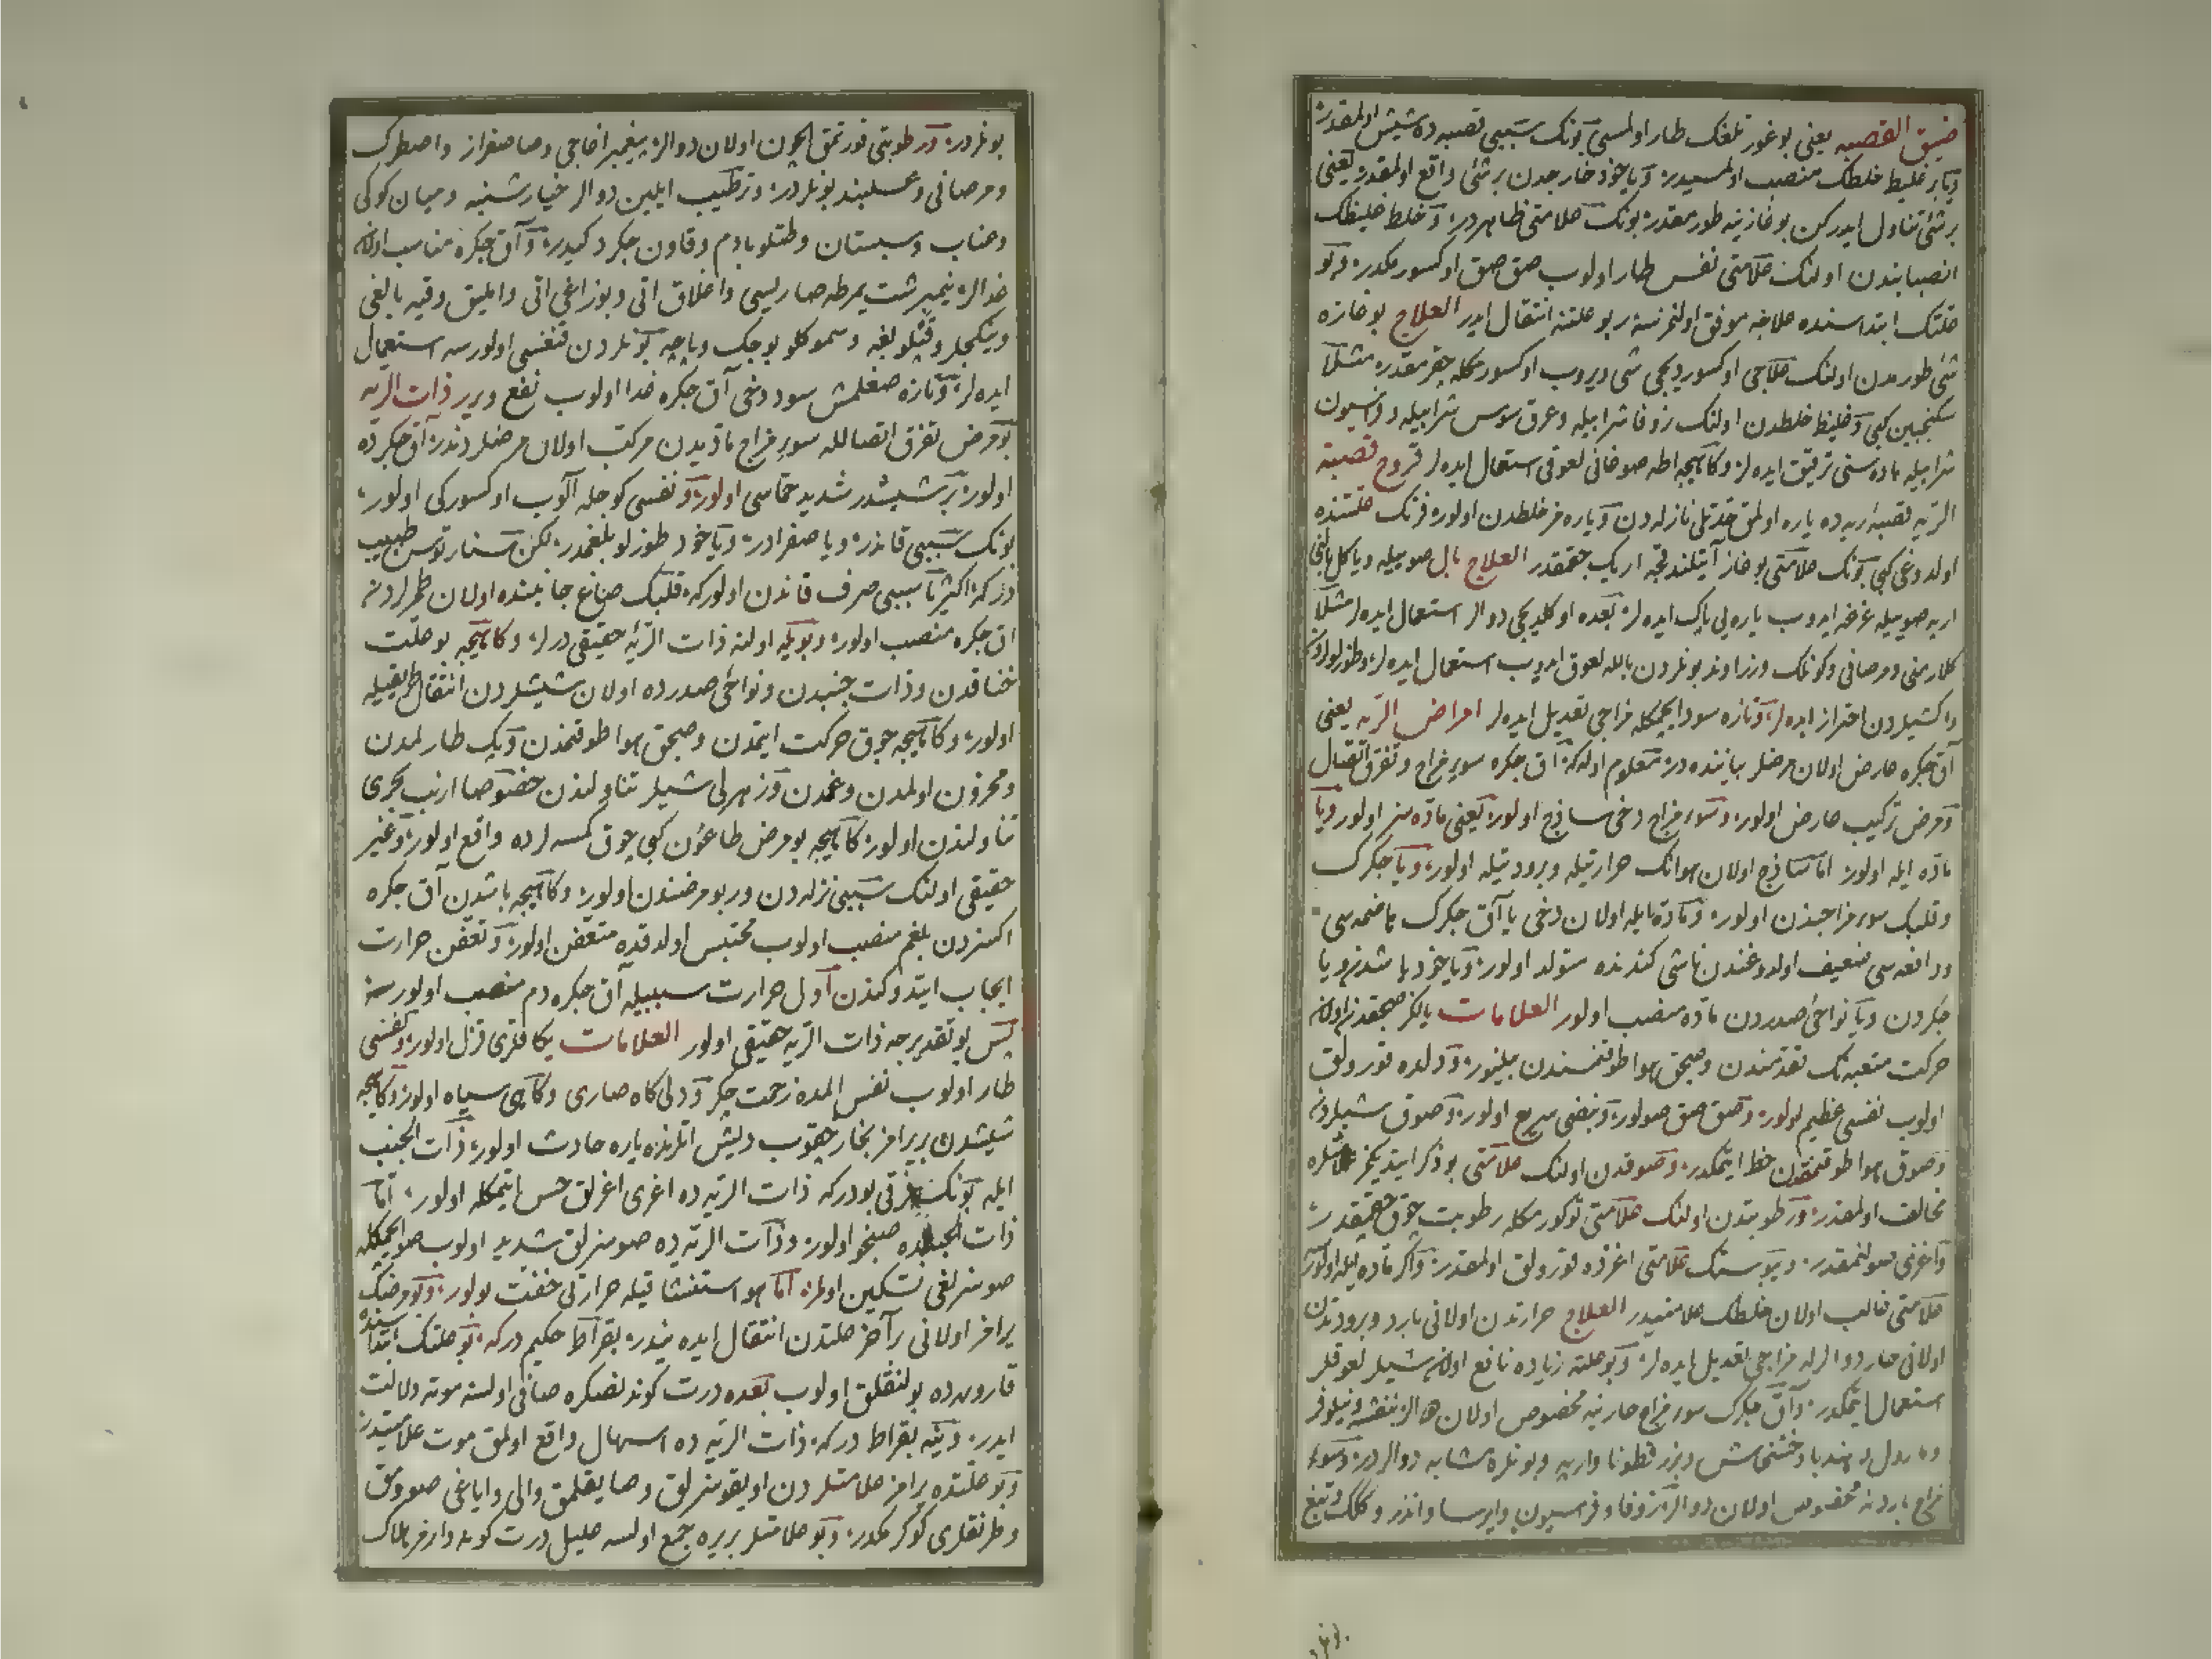 ضيق القصبه يعنى بوغورتلغك طار اولمسى بونك سببى قصبه ده شيش اولمقدر
ويا بر غليظ خلطك منصب اولمسيدر وياخود خارجدن بر شئ واقع اولمقدر يعنى
بر شئ تناول ايدركن بوغازينه طورمقدر بونك علامتى ظاهردر وخلط غليظك
انصبابندن اولنك علامتى نفس طار اولوب صق صق اوكسورمكدر وبو
علتك ابتداسنده علاجه موفق اولنمزسه ربو علتنه انتقال ايدر العلاج بوغازه
شئ طورمدن اولنك علاجى اوكسوردیجى شى ويروب اوكسورمكله چقرمقدر مثلا
سكنجبين كبى وغليظ خلطدن اولنك زوفا شرابيله وعرق سوس شرابيله وفراسيون
شرابيله ماده سنى ترقيق ايده لر وكاهيجه اطه صوغانى لعوقى استعمال ايده لر قروح قصبة
الريه قصبۀ ريه ده ياره اولمق حدتلى نازله دن ويا يارمز خلطدن اولور فرنك علتنده
اولدوغى كبى بونك علامتى بوغاز آيتلندقچه اريك چقمقدر العلاج بال صوييله ويا كل بالغى
اربه صوييله غرغره ايدوب ياره يى پاك ايده لر بعده اوكلديجى دوالر استعمال ايده لر مثلا
كلارمنى ومرصافى وكونلك وزراوند بونلردن بالله لعوق ايدوب استعمال ايده لر وطوزلولردن
واكشيلردن احتراز ايده لر وتازه سود ايچمكله مزاجى تعديل ايده لر امراض الريه يعنى
آق جكره عارض اولان مرضلر بياننده در معلوم اوله كه آق جكره سوء مزاج وتفرق اتصال
ومرض تركيب عارض اولور وسوء مزاج دخى ساذج اولور يعنى ماده سز اولور ويا
ماده ايله اولور اما ساذج اولان هوانك حرارتيله وبرودتيله اولور ويا جكرك
وقلبك سوء مزاجندن اولور وماده ايله اولان دخى يا آق جكرك هاضمه سى
ودافعه سى ضعيف اولدوغندن ناشى كندنده متولد اولور وياخود باشدن ويا
جكردن ويا نواحئ صدردن ماده منصب اولور العلامات يالكز صيجقدن اولانه
حركت متعبه نك تقدمندن وصيجق هوا طوتنمسندن بيلنور ودلده قورولق
اولوب نفسى عظيم اولور وصق صق صولور ونبضى سريع اولور وصوق شيلردن
وصوق هوا طوتنمقدن حظ ايتمكدر وصوقدن اولنك علامتى بو ذكر ايتديكمز علامتلره
مخالف اولمقدر ورطوبتدن اولنك علامتى توكورمكله رطوبت چوق چقمقدر
واغزى صولنمقدر ويبوستك علامتى اغزده قورولق اولمقدر واكر ماده ايله اولور
علامتى غالب اولان خلطك علامتيدر العلاج حرارتدن اولانى بارد وبرودتدن
اولانى حار دوالرله مزاجى تعديل ايده لر وبو علته زياده نافع اولان شيلر لعوقلر
استعمال ايتمكدر وآق جكرك سوء مزاج حارينه مخصوص اولان دوالر بنفشه ونيلوفر
ومارول وهندبا وخشخاش وبزر قطونا واربه وبونلره مشابه دوالردر وسوء
مزاج باردنه مخصوص اولان دوالر زوفا وفراسيون وايرسا واندز
بونلردر ورطوبتى قورتمق ايچون اولان دوالر پيغمبر اغاجى وصاصفراز واصطرك
ومرصافى وعسلبند بونلردر وترطيب ايلين دوالر خيارشنبه وميان كوكى
وعناب وسبستان وطتلو بادم وقاون جكردكيدر وآق جكره مناسب اولان
غدالر نيمبرشت يمرطه صاريسى واغلاق اتى وبوزاغى اتى
ايده لر وتازه صغلمش سود دخى آق جكره غدا اولوب نفع ويرر ذات الريه
بو مرض تفرق اتصالله سوء مزاج ماديدن مركب اولان مرضلردندر آق جكرده
اولور بر شيشدر شديد حماسى اولور ونفسى كوجله آلوب اوكسوركى اولور
بونك سببى قاندر ويا صفرادر وياخود طوزلو بلغمدر لكن سنارتوس طبيب
دركه اكثريا سببى صرف قاندن اولور كه قلبك صاغ جانبنده اولان طمرلردن
آق جكره منصب اولور وبويله اولنه ذات الريۀ حقيقى درلر وكاهيجه بو علت
خناقدن وذات جنبدن ونواحئ صدرده اولان شيشلردن انتقال طريقيله
اولور وكاهيجه چوق حركت ايتمدن وصيجق هوا طوتنمدن وپك طارلمدن
ومحزون اولمدن وغمدن وزهرلى شيلر تناولندن خصوصا ارنب بحرى
تناولندن اولور كاهيجه بو مرض طاعون كبى چوق كمسه لرده واقع اولور وغير
حقيقى اولنك سببى نزله دن وربو مرضندن اولور وكاهيجه باشدن آق جكره
اكسزدن بلغم منصب اولوب محتبس اولدقده متعفن اولور وتعفن حرارت
ايجاب ايتدوكندن اول حرارت سببيله آق جكره دم منصب اولورسه
پس بو تقديرجه ذات الريه حقيقى اولور العلامات يكاقلرى قزل اولور ونفسى
طار اولوب نفس المده زحمت چكر ودلى كاه صارى وكاهى سياه اولور وكاهيجه
شيشدن بر يرامز بخار چقوب ديش اتلرنده ياره حادث اولور ذات الجنب
ايله بونك فرقى بودركه ذات الريه ده اغرى اغرلق حس ايتمكله اولور اما
ذات الجنبده صنجو اولور وذات الريه ده صوسزلق شديد اولوب صو ايچمكله
صوسزلغى تسكين اولمز اما هوا استنشاقيله حرارتى خفت بولور وبو مرضك
يرامز اولانى بر آخر علتدن انتقال ايده نيدر بقراط حكيم دركه بو علتك ابتداسنده
قاروره ده بولنقلق اولوب بعده درت كوندنصكره صافى اولسه موته دلالت
ايدر وينه بقراط دركه ذات الريه ده اسهال واقع اولمق موت علامتيدر
وبو علتده يرامز علامتلردن اويقوسزلق وصايقلمق والى واياغى صوومق
وطرنقلرى كوكرمكدر وبو علامتلر بر يره جمع اولسه عليل درت كونه وارمز هلاك